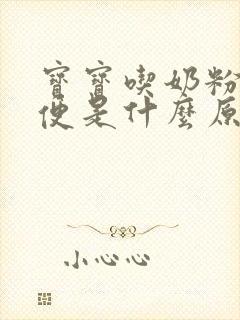 寶寶喫奶粉
便是什麼原
小心心